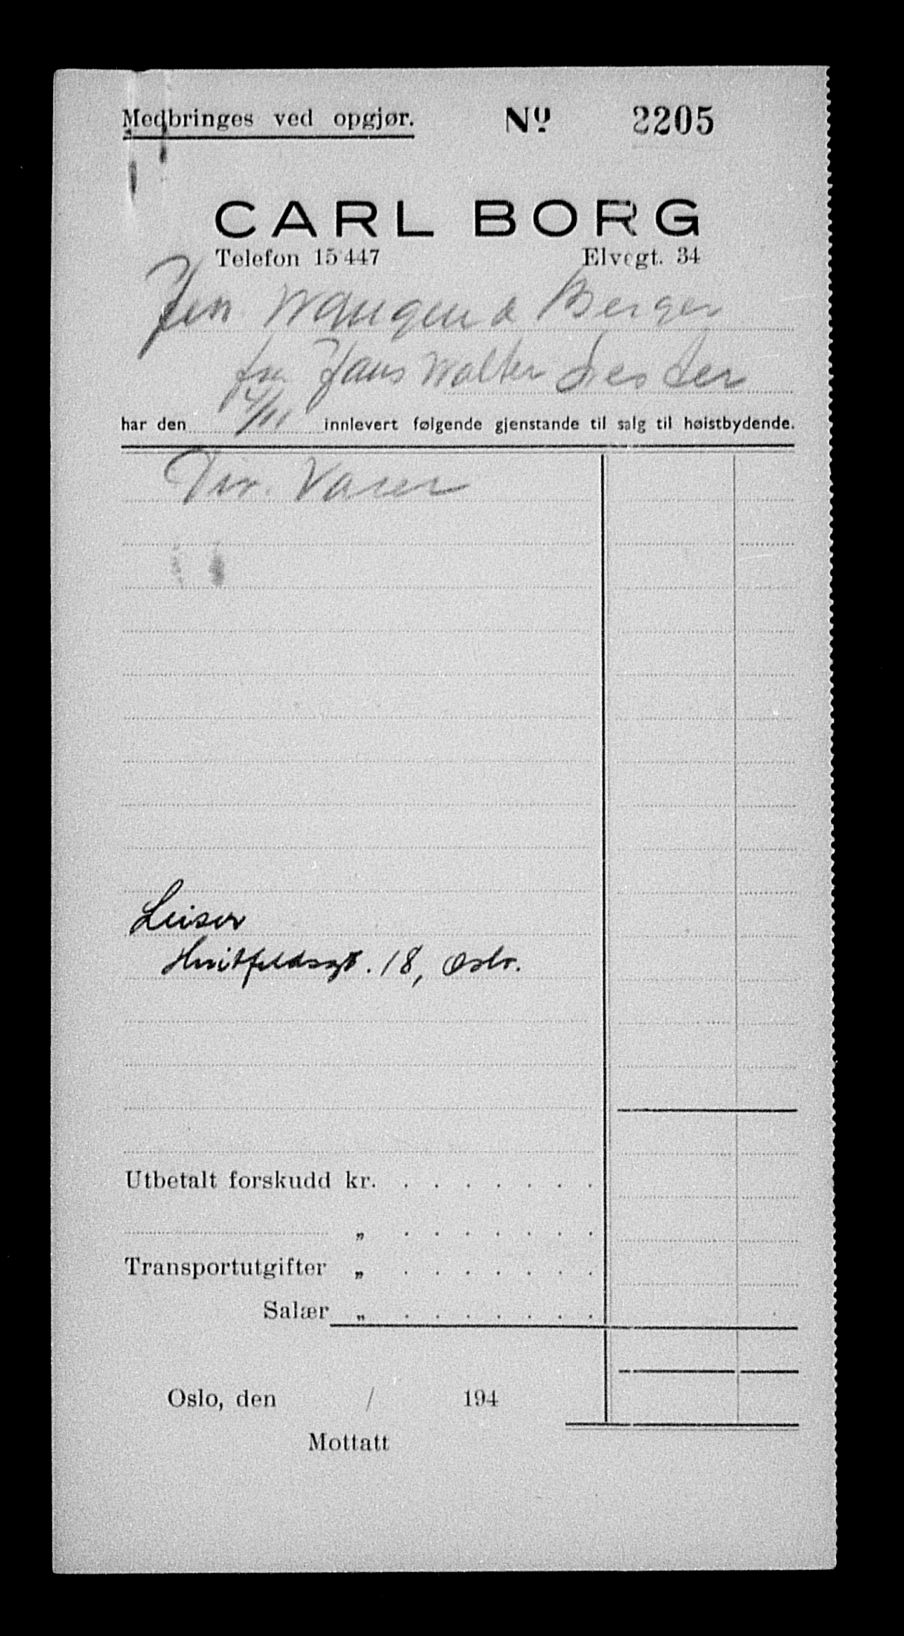 Medbringes ved opgjør. Nº 2205
CARL BORG
Telefon 15447 Elvegt. 34
Waugen & Berger
fra Hans Walter
har den 4/11 innlevert følgende gjenstande til salg til høistbydende.
Div. Varer
Leiser
Huitfeldsgt. 18, Oslo.
Utbetalt forskudd kr. . . . . . . .
„ . . . . . . .
Transportutgifter „ . . . . . . .
Salær „ . . . . . . .
Oslo, den / 194
Mottatt